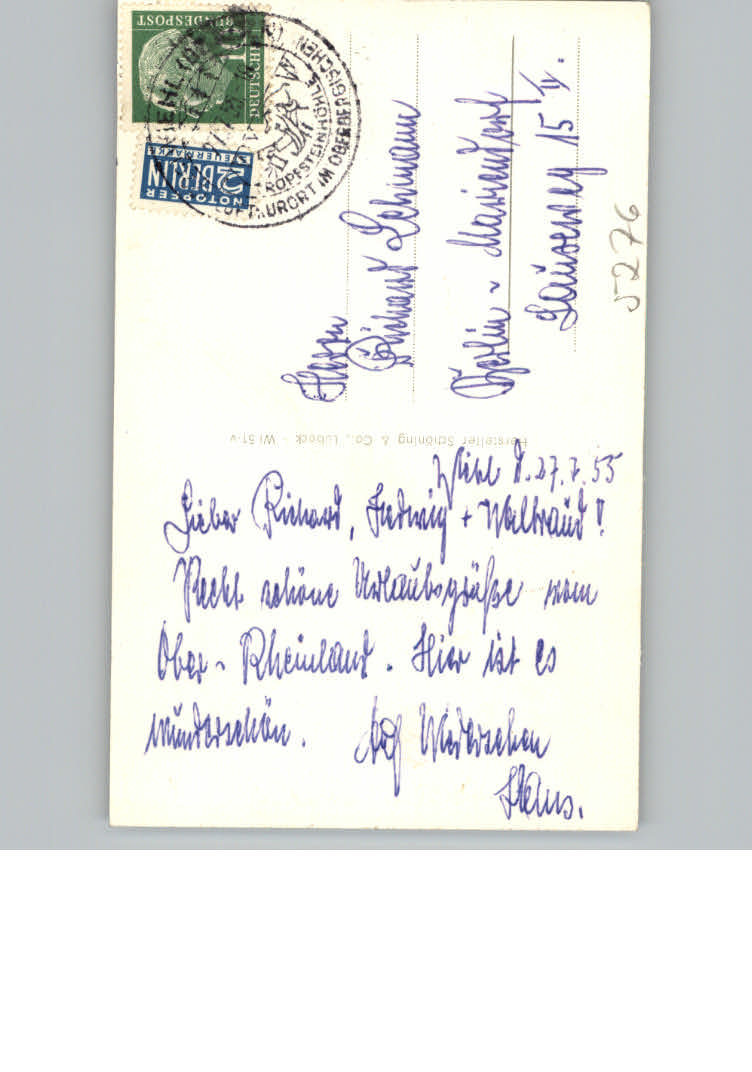 Wiehl d. 27.7.55
Lieber Richard, Hedwig + Waltraud!
Recht schöne Urlaubsgrüße vom
Ober-Rheinland. Hier ist es
wunderschön. Auf Wiedersehen
Hans.
Herrn
Richard Lehmann
Berlin-Mariendorf
15 IV.
5276
Hersteller Schöning & Co., Lübeck - Wi 51-v
DEUTSCHE
BUNDESPOST
10
NOTOPFER
2 BERLIN
STEUERMARKE
WIEHL
TROPFSTEINHÖHLE
LUFTKURORT IM OBERBERGISCHEN